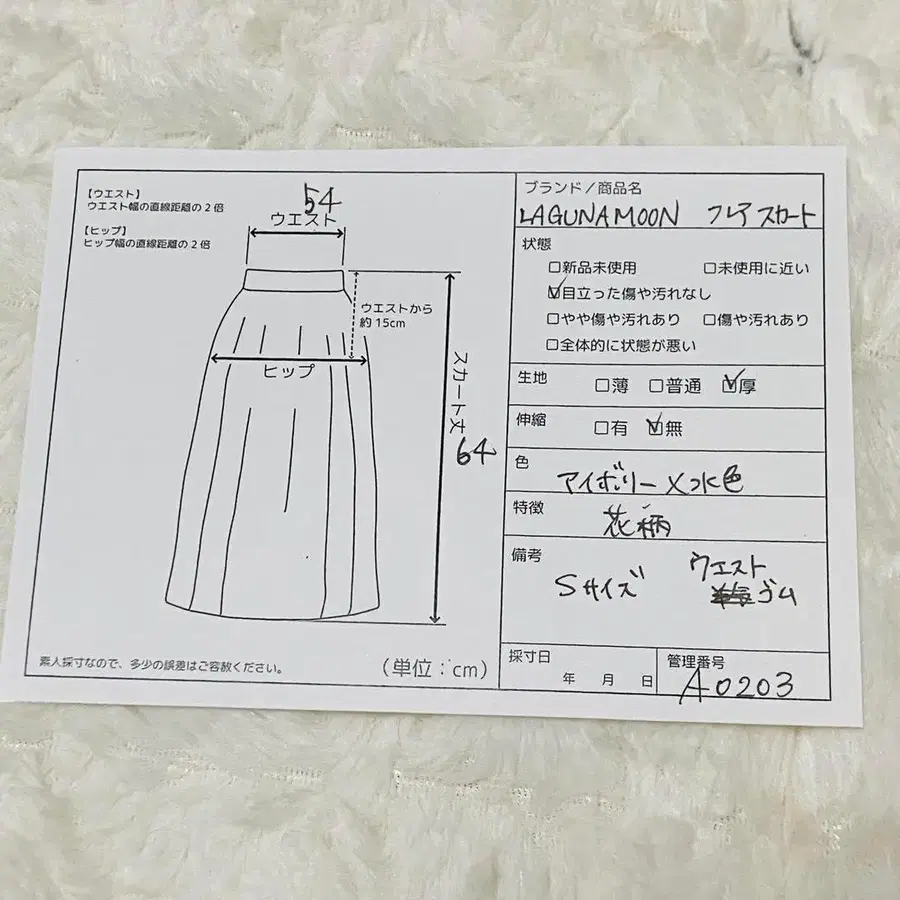 【ウエスト】
ウエスト幅の直線距離の2倍
【ヒップ】
ヒップ幅の直線距離の2倍
54
ウエスト
ウエストから
約15cm
ヒップ
スカート丈
64
素人採寸なので、多少の誤差はご容赦ください。
(単位:cm)
ブランド/商品名
LAGUNAMOON フレアスカート
状態
□新品未使用 □未使用に近い
☑目立った傷や汚れなし
□やや傷や汚れあり □傷や汚れあり
□全体的に状態が悪い
生地 □薄 □普通 ☑厚
伸縮 □有 ☑無
色
アイボリー×水色
特徴
花柄
備考
Sサイズ ウエスト
ゴム
採寸日
年 月 日
管理番号
A0203